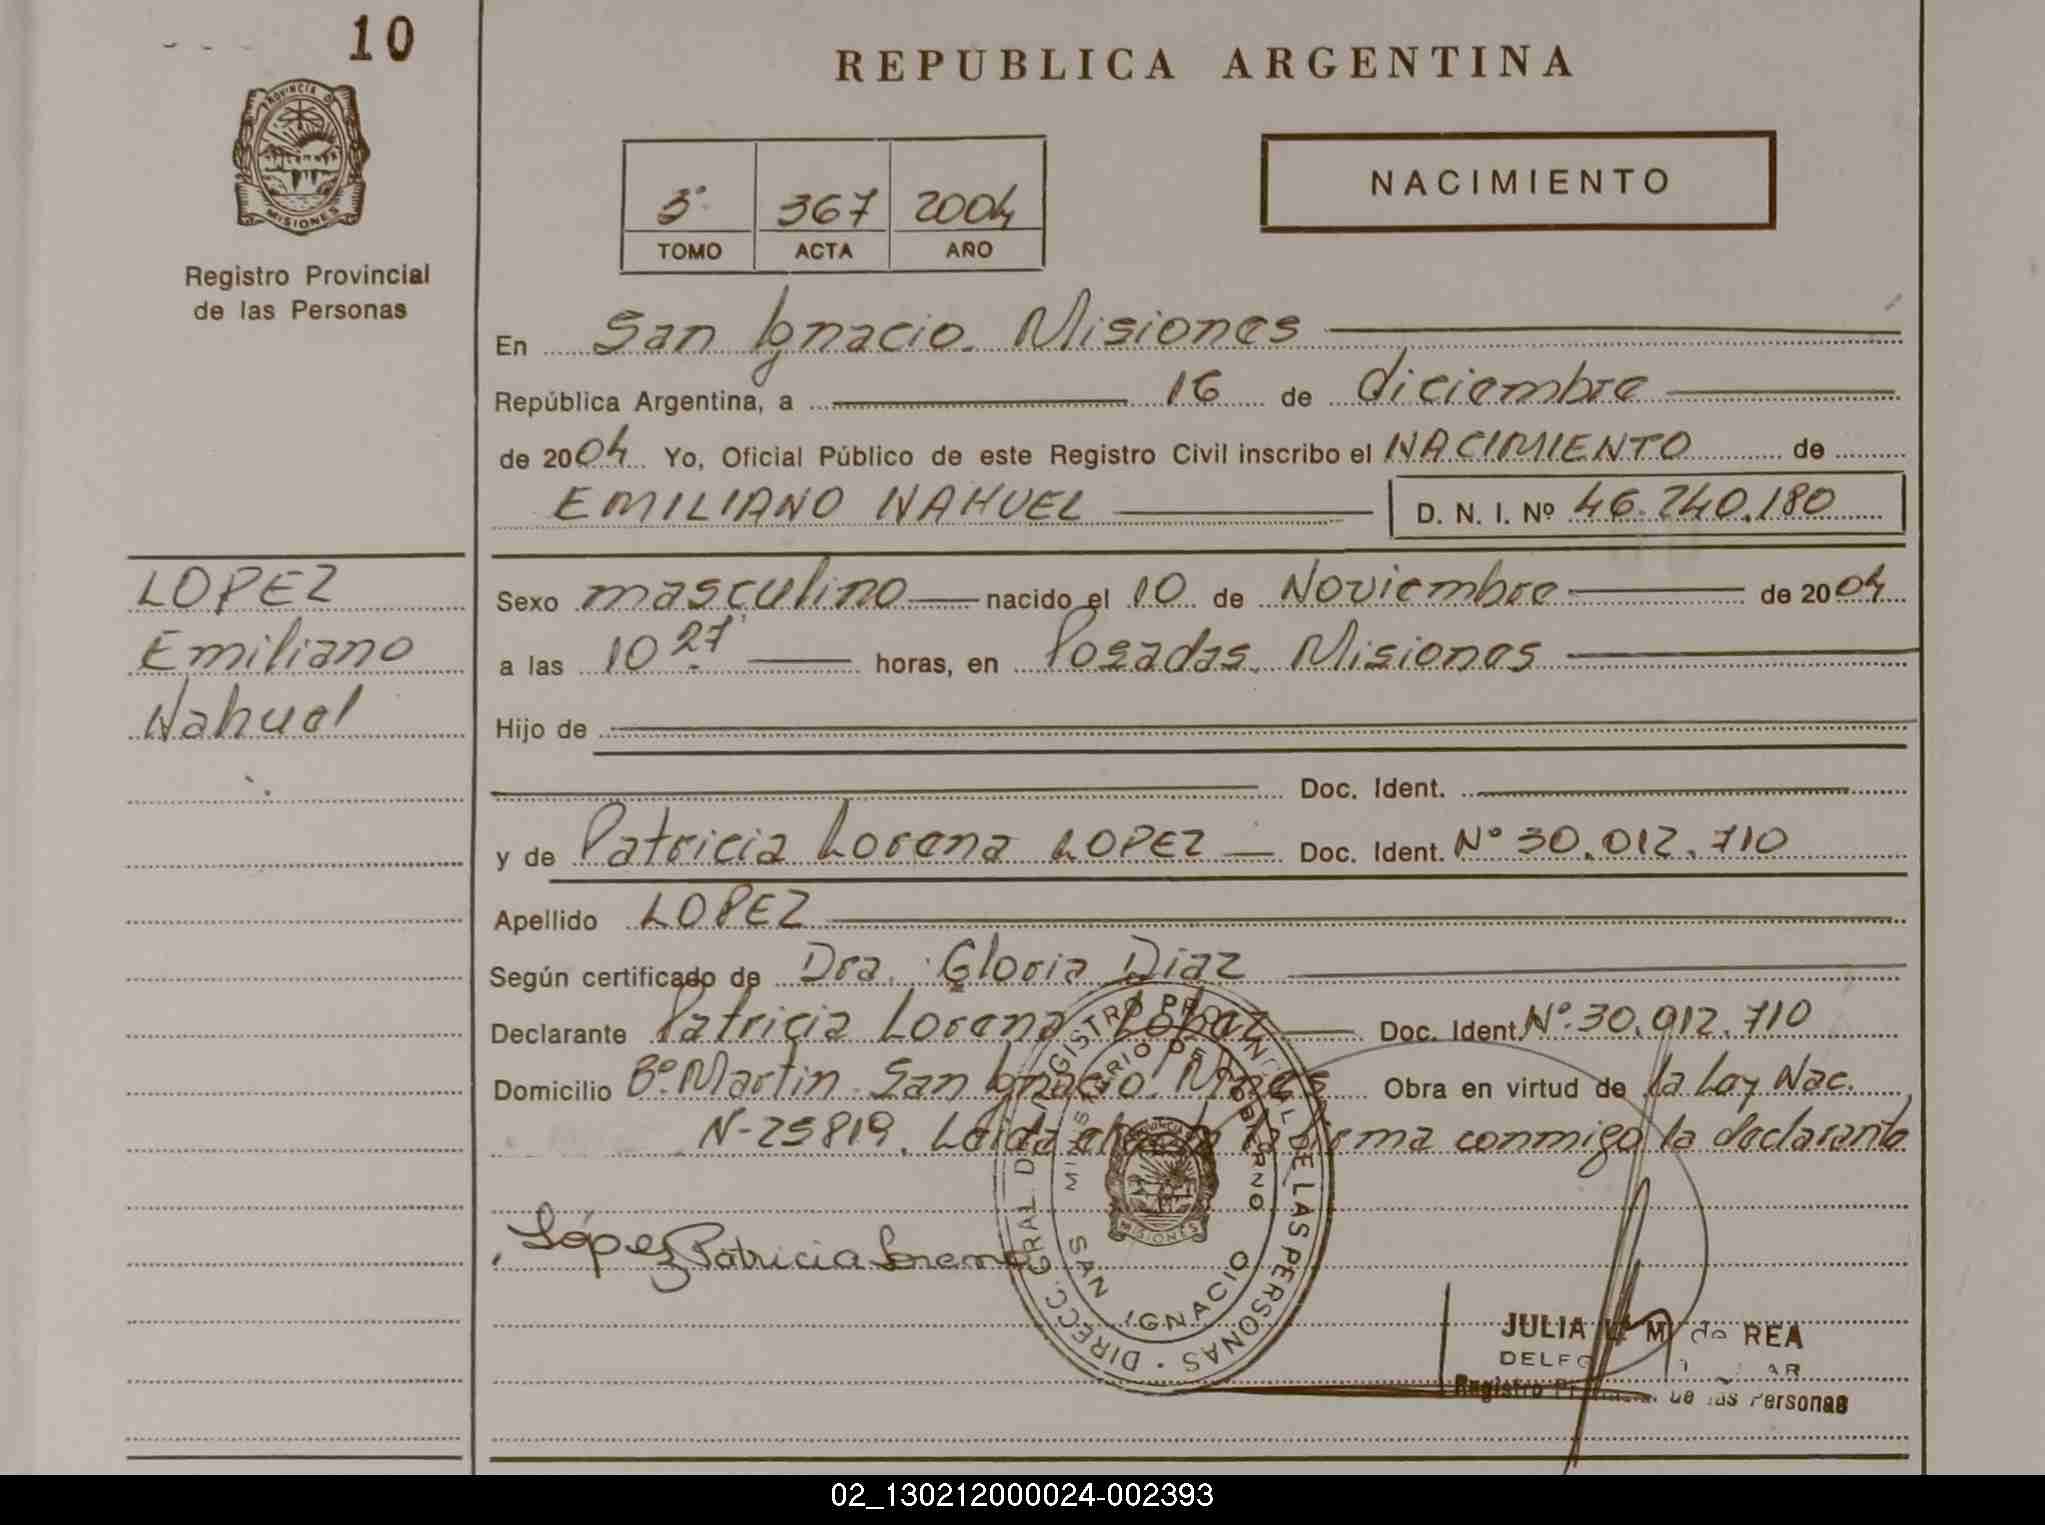 10
REPUBLICA ARGENTINA
PROVINCIA DE
MISIONES
Registro Provincial
de las Personas
3º 367 2004
TOMO ACTA AÑO
NACIMIENTO
En San Ignacio. Misiones
República Argentina, a 16 de diciembre
de 2004 Yo, Oficial Público de este Registro Civil inscribo el NACIMIENTO de
EMILIANO NAHUEL D. N. I. Nº 46.240.180
LOPEZ
Emiliano
Nahuel
Sexo masculino nacido el 10 de Noviembre de 2004
a las 10 27 horas, en Posadas. Misiones
Hijo de
Doc. Ident.
y de Patricia Lorena LOPEZ Doc. Ident. Nº 30.012.710
Apellido LOPEZ
Según certificado de Dra. Gloria Diaz
Declarante Patricia Lorena Lopez Doc. Ident. Nº 30.012.710
Domicilio Bº Martin San Ignacio. Mnes Obra en virtud de la Ley Nac.
N-25819. Leida el acta la firma conmigo la declarante
López Patricia Lorena
DIRECC. GRAL DE REGISTRO PROVINCIAL DE LAS PERSONAS
MINISTERIO DE GOBIERNO
SAN IGNACIO
PROVINCIA
MISIONES
JULIA M de REA
Registro de las Personas
02_130212000024-002393